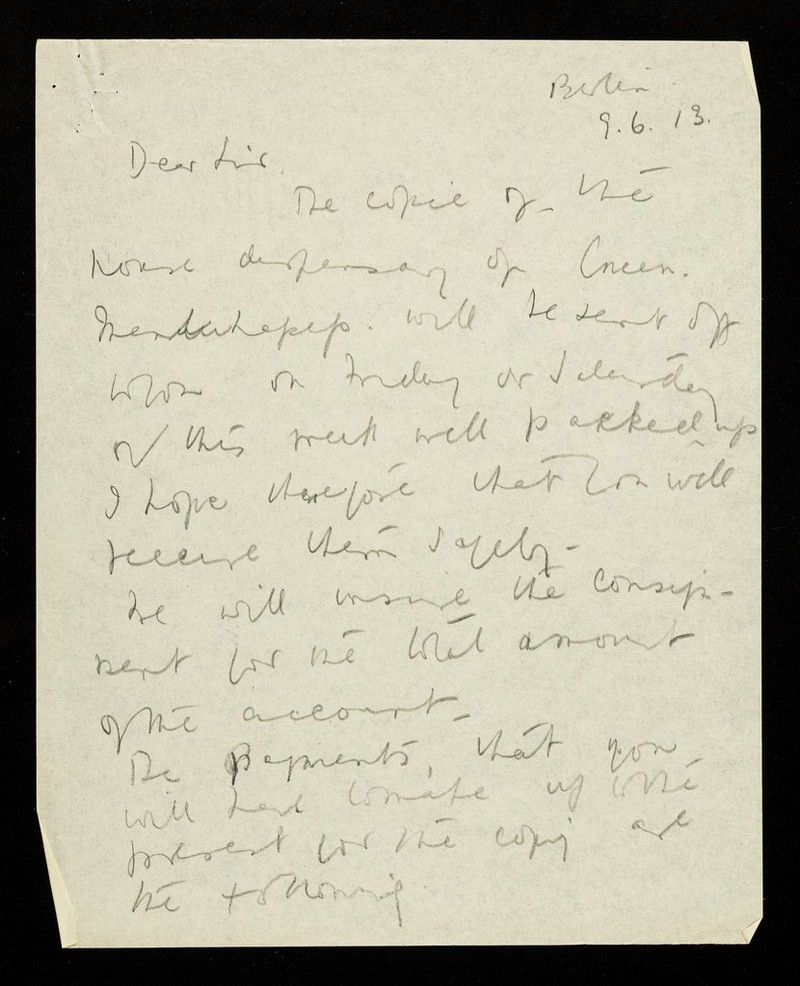 Berlin
9. 6. 13.
Dear Sir.
The copie of the
house dispensary of
will be sent off
on Friday or Saturday
of this week well packed up
I hope therefore that you will
receive them safely -
We will insure the consign-
ment for the total amount
of the account -
The payments, that you
will have to make up to the
present for the copy are
the following